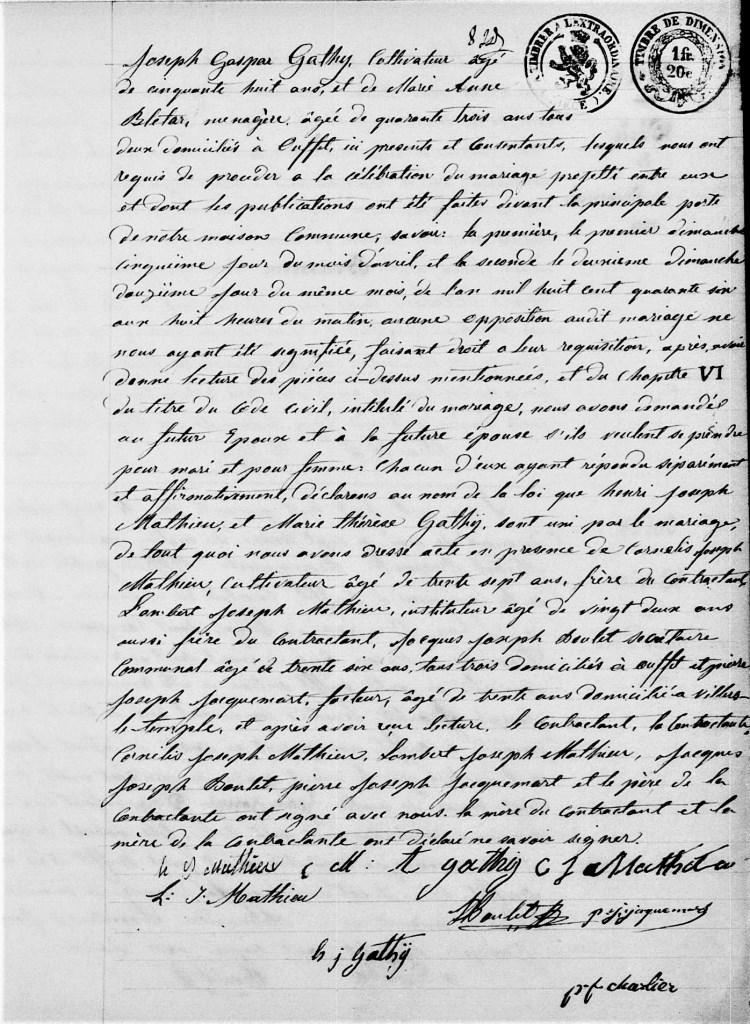 8
A L'EXTRAORD
TIMBRE DE DIMENSION
1 fr.
20c
Joseph Gaspar Gathy, Cultivateur âgé
de cinquante huit ans, et de Marie Anne
Bletar, menagère, âgée de quarante trois ans tous
deux domiciliés à Ouffet, ici presents et Consentants, lesquels nous ont
requis de proceder a la célébration du mariage projetté entre eux
et dont les publications ont été faites devant la principale porte
de notre maison Commune, savoir: la première, le premier dimanche
cinquième jour du mois d'avril, et la seconde le deuxieme dimanche
douzième jour du même mois, de l'an mil huit cent quarante six
aux huit heures du matin, aucune opposition audit mariage ne
nous ayant été signifiée, faisant droit a leur requisition, après avoir
donne lecture des pièces ci-dessus mentionnées, et du chapitre VI
du titre du Code Civil, intitulé du mariage, nous avons demandé
au futur Epoux et à la future épouse s'ils veulent se prendre
pour mari et pour femme: chacun d'eux ayant répondu séparément
et affirmativement, déclarons au nom de la loi que henri Joseph
Mathieu, et Marie thérèse Gathy, sont uni par le mariage,
de tout quoi nous avons dressé acte en presence de Cornelis Joseph
Mathieu, Cultivateur âgé de trente sept ans, frère du Contractant,
Lambert Joseph Mathieu, instituteur âgé de vingt deux ans
aussi frère du Contractant, Jacques Joseph Boulet secretaire
Communal âgé de trente six ans, tous trois domiciliés à Ouffet et pierre
Joseph Jacquemart, facteur, âgé de trente ans domicilié a Villers-
le temple, et après avoir reçu lecture, le Contractant, la Contractante
Cornélis Joseph Mathieu, Lambert Joseph Mathieu, Jacques
Joseph Boulet, pierre Joseph Jacquemart et le père de la
Contractante ont signé avec nous. la mère du Contractant et la
mère de la Contractante ont déclaré ne savoir signer.
Mathieu M: t gathy C J Mathieu
L: J. Mathieu
Boulet p j jacquemart
h j Gathÿ
charlier